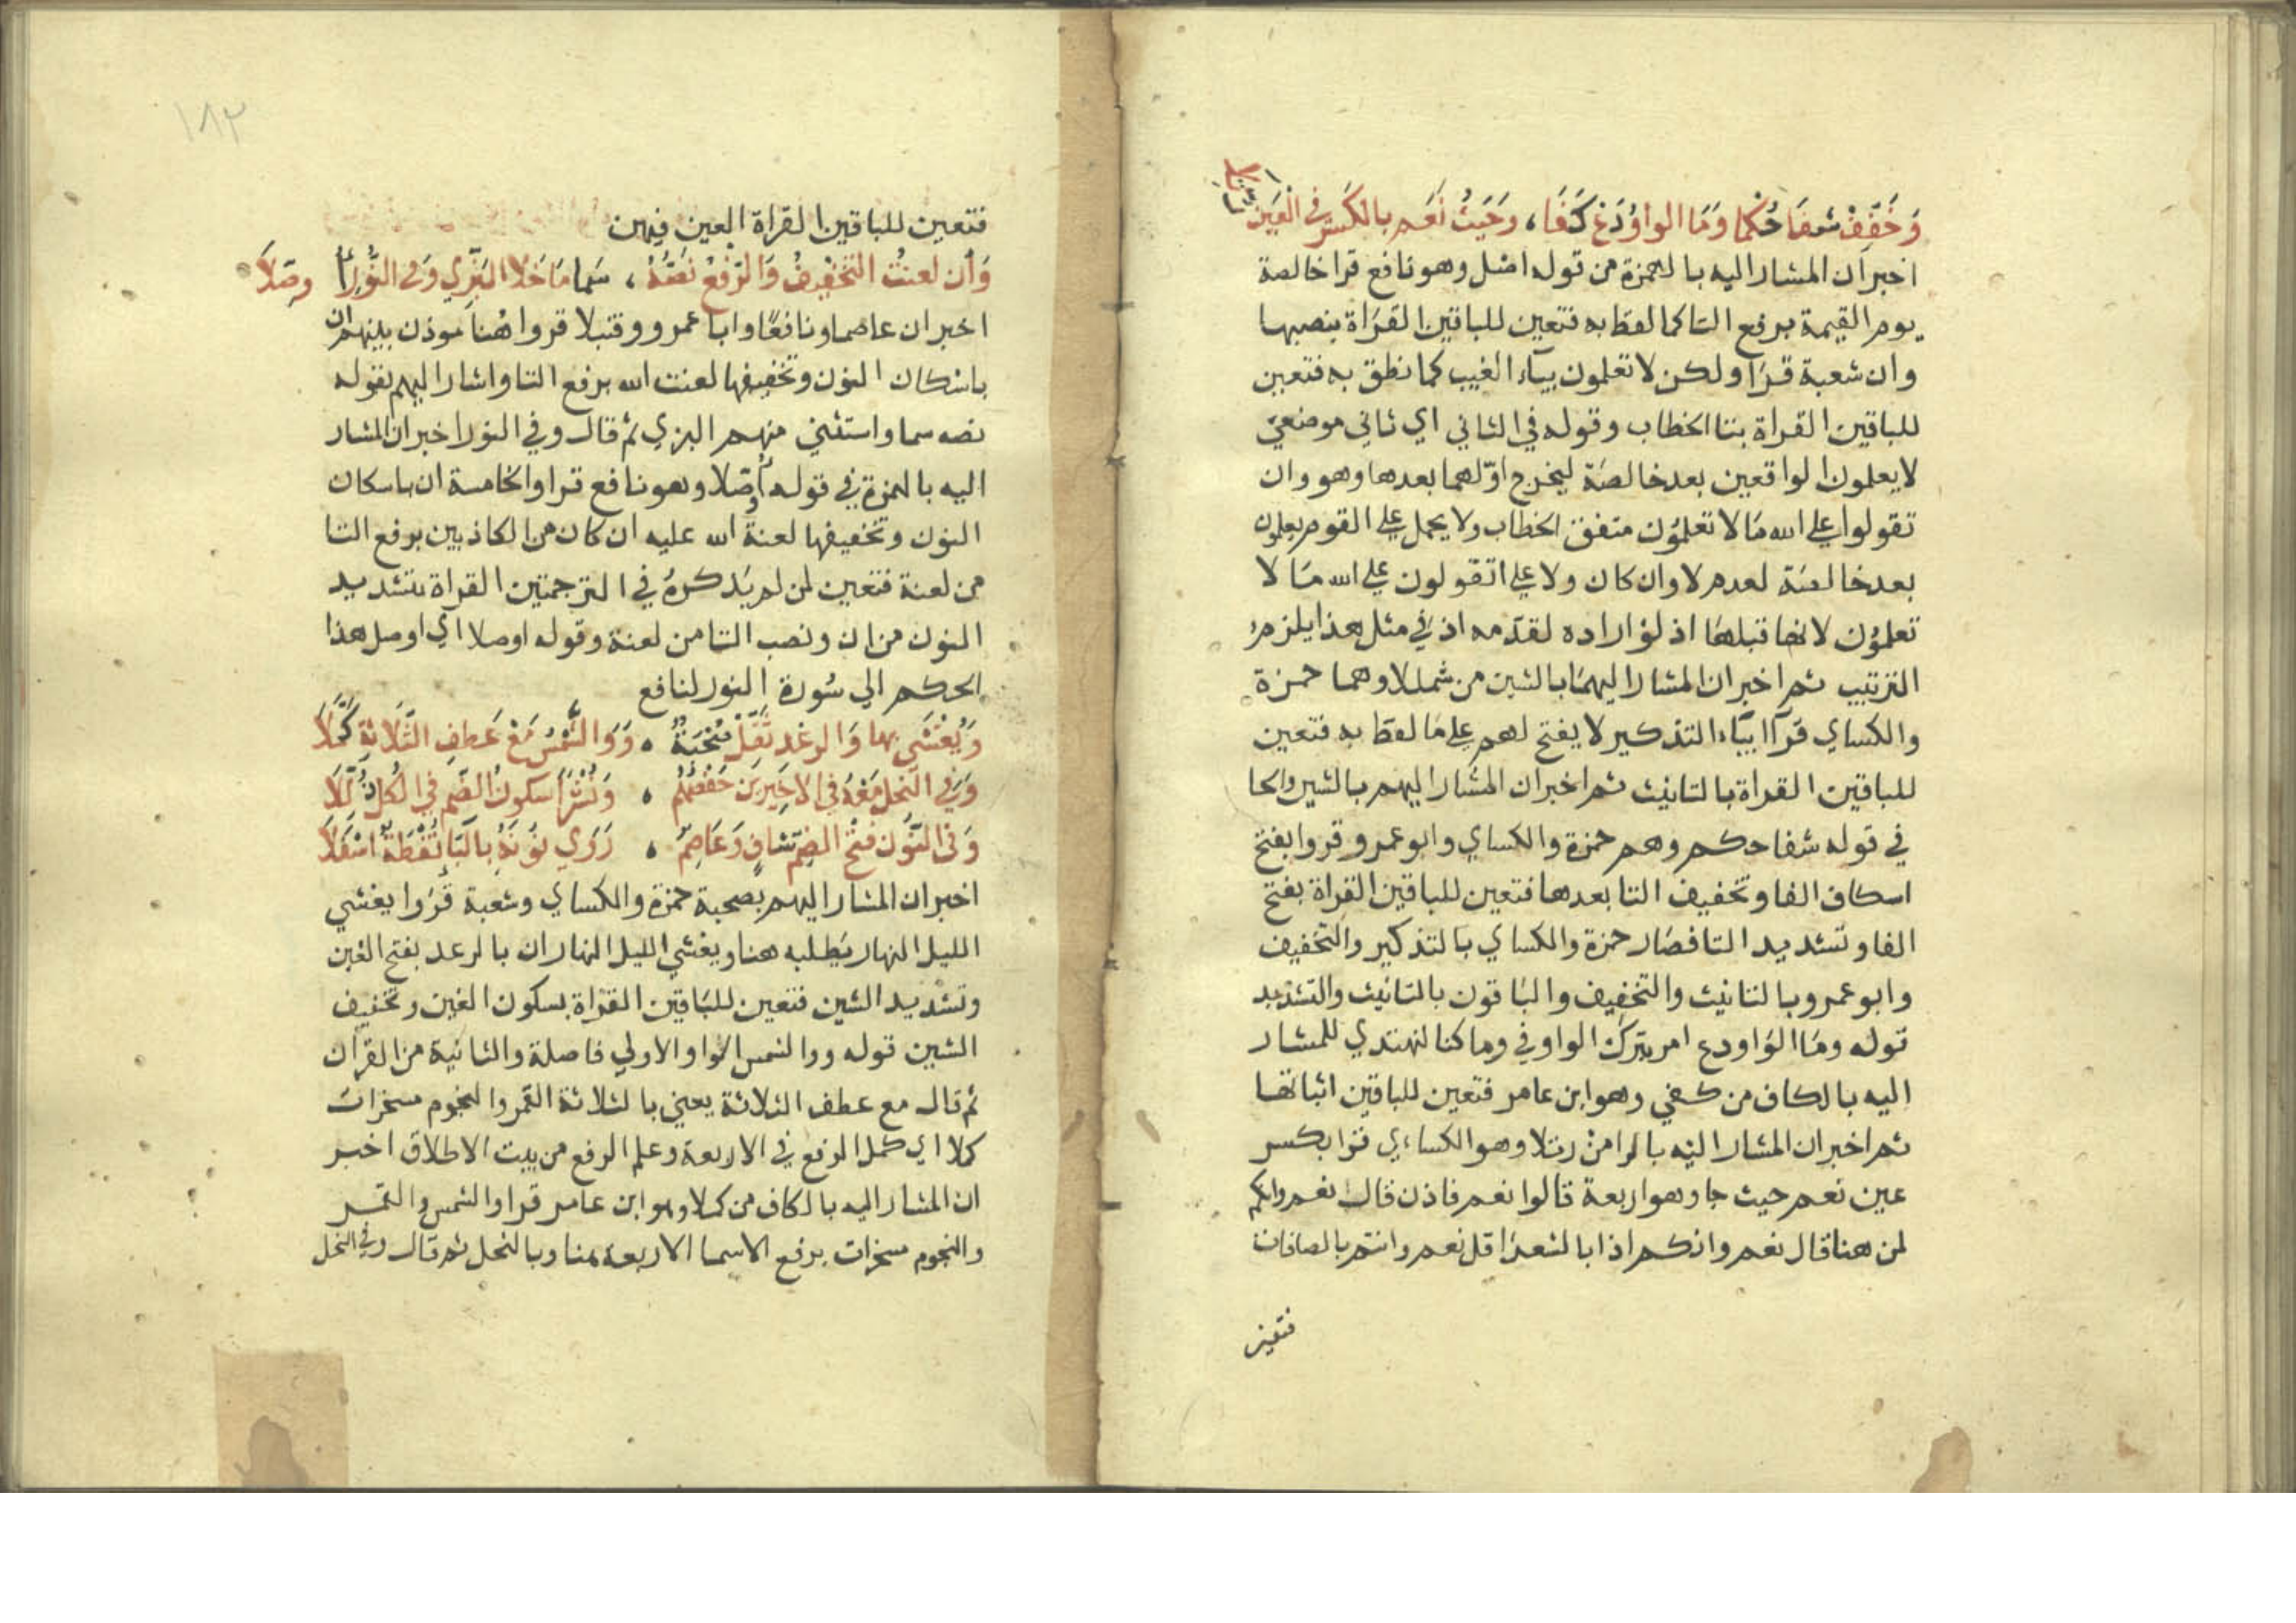 وَخَفِّفْ شفَا حُكمَا وَمَا الواوُ دَعْ كَفَا، وَحَيثُ نَعَم بالكَسْرِ في العَينِ
اخبران المشار اليه بالهمزة من قوله اصل وهو نافع قرا خالصة
يوم القيمة برفع التا كما لفظ به فتعين للباقين القراة بنصبها
وان شعبة قرَا ولكن لا تعلمون بيآء الغيب كما نطق به فتعين
للباقين القراة بتا الخطاب وقوله في الثاني اي ثاني موضعيّ
لا يعلمون الواقعين بعد خالصَة ليخرج اوّلهما بعدها وهو وان
تقولوا على الله مَا لا تعلمُون متفق الخطاب ولا يحمل على القوم يعلمون
بعد خالصَة لعدم لا وان كان ولا على اتقولون على الله مَا لا
تعلمُون لانها قبلهَا اذ لوْ اراده لقدّمه اذ في مثل هذا يلزمُ
الترتيب ثم اخبر ان المشار اليهمَا بالشين من شمللا وهما حمزة
والكساي قرآ بيَآء التذكير لا يفتح لهم على مَا لفظ به فتعين
للباقين القراة بالتانيث ثم اخبر ان المشار اليهم بالشين والحا
في قوله شفا حكم وهم حمزة والكساي وابو عمرو قروا بفتح
اسكان الفا وتخفيف التا بعدها فتعين للباقين القراة بفتح
الفا وتشديد التا فصَار حمزة والكساي بالتذكير والتخفيف
وابو عمرو بالتانيث والتخفيف والبَاقون بالتانيث والتشديد
قوله ومَا الوَاو دع امر بتركَ الواو في وما كنا لنهتدي للمشار
اليه بالكاف من كفي وهو ابن عامر فتعين للباقين اثباتها
ثم اخبر ان المشار اليْه بالرا منْ رتلا وهو الكساءي قرا بكسر
عين نعم حيث جا وهو اربعة قالوا نعم فاذن قال نعم وانكم
لمن هنا قال نعم وانكم اذا بالشعرَا قل نعم وانتم بالصافات
فتعين
١٨٢
فتعين للباقين القراة العين فيهن
وَأن لعنتُ التخفيفُ وَالرّفعُ نصّهُ، سَما مَا خَلا البَزّي وَفي النّور أُ وصّلَا
اخبر ان عاصما ونافعًا وابا عمرو وقنبلا قروا هُنا موذن بينهم ان
باسْكان النون وتخفيفها لعنت الله برفع التا واشار اليهم بقوله
نصه سما واستثني منهم البزي ثم قال وفي النور اخبر ان المشار
اليه بالهمزة في قوله أوصّلا وهو نافع قرا والخامسة ان باسكان
النون وتخفيفها لعنةُ الله عليه ان كان من الكاذبين برفع التا
من لعنة فتعين لمن لم يَذكرهُ في الترجمتين القراة بتشديد
النون من ان ونصب التا من لعنة وقوله اوصلا اي اوصل هذا
الحكم الي سُورة النور لنافع
وَيُغْشَي بها وَالرعْدِ ثَقّلَ صُحْبَةٌ ، وَوَالشّمْسُ مَعْ عَطفِ الثّلَاثةِ كَمّلَا
وَفي النّحل مَعْهُ في الاخِيرَينِ حَفْصُهُم ، وَنُشْرًا سكونُ الضّم في الكُل ذُلّلَا
وَفي النّون فتْحُ الضم شافٍ وَعَاصِمٌ ، رَوَي نونَهُ بالبَا نُقْطَةٌ اسْفَلَا
اخبر ان المشار اليهم بصحبة حمزة والكساي وشعبة قرَوا يغشي
الليل النهار يَطلبه هنا ويغشي الليل النهار ان بالرعد بفتح الغين
وتشديد الشين فتعين للبَاقين القرَاة بسكون الغين وتخفيف
الشين قوله ووالشمس الواو الاولي فاصلة والثانية من القرآن
ثم قال مع عطف الثلاثة يعني بالثلاثة القمر والنجوم مسخرات
كملا اي كمل الرفع في الاربعة وعلم الرفع من بيت الاطلاق اخبر
ان المشار اليه بالكاف من كملا وهو ابن عامر قرا والشمس والقمر
والنجوم مسخرات برفع الاسما الاربعة هنا وبالنحل ثم قال وفي النحل